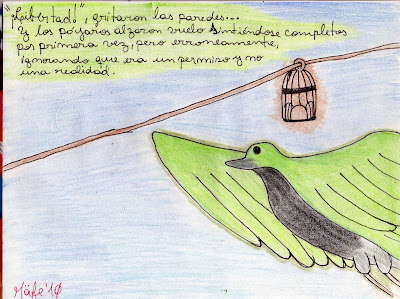 "¡Libertad!", gritaron las paredes...
Y los pájaros alzaron vuelo sintiéndose completos
por primera vez, pero erroneamente,
ignorando que era un permizo y no
una realidad.
Mäfe'10